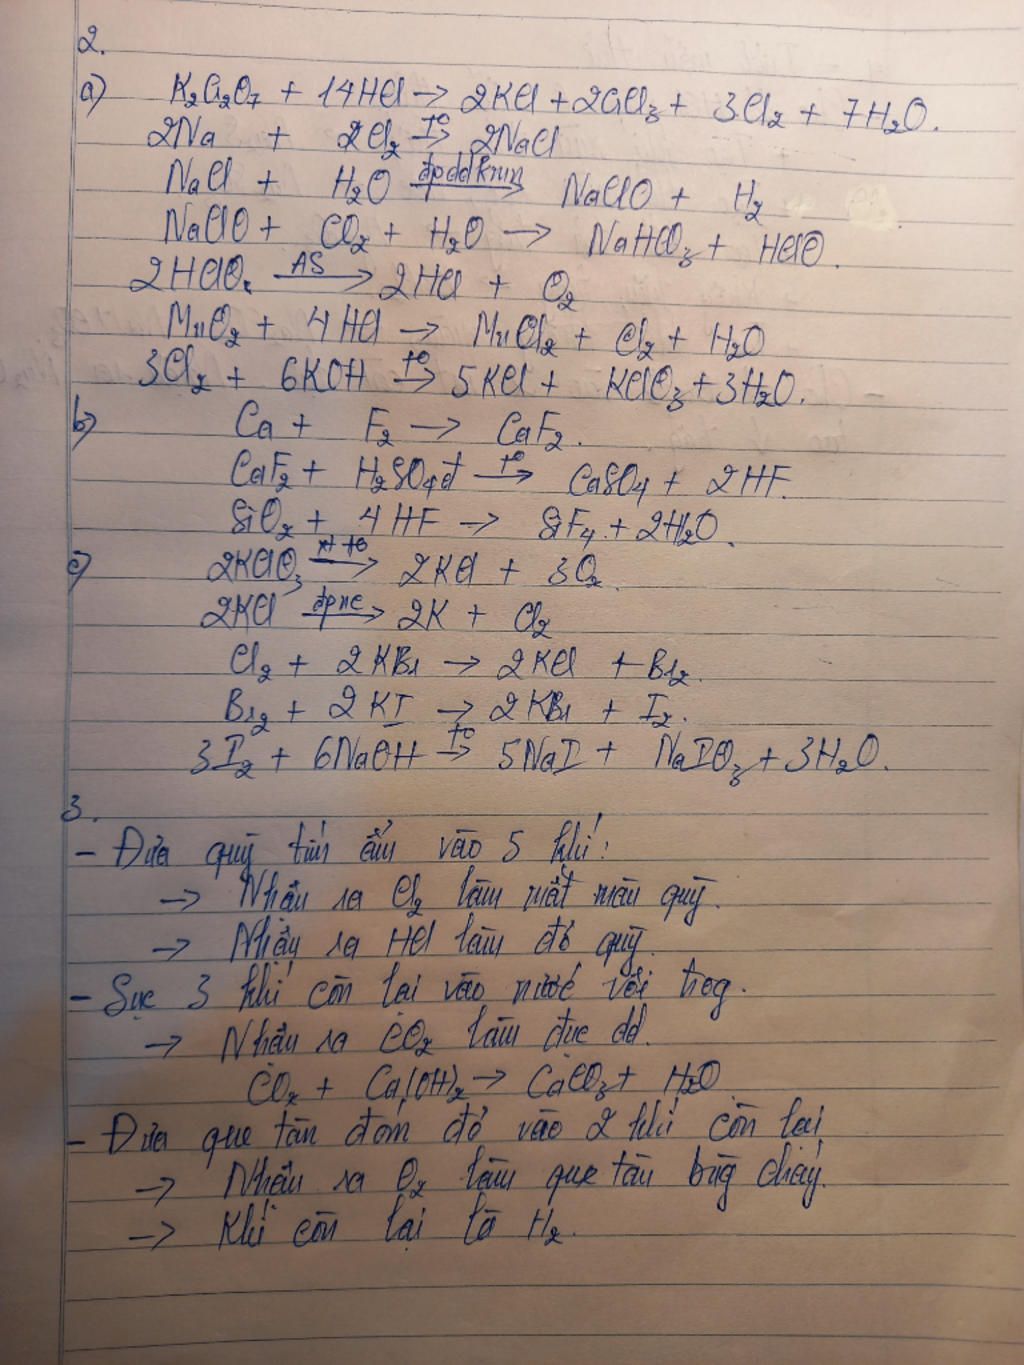 2.
a) K2Cr2O7 + 14HCl → 2KCl + 2CrCl3 + 3Cl2 + 7H2O.
2Na + 2Cl2 t°→ 2NaCl
NaCl + H2O đpddkmn→ NaClO + H2
NaClO + CO2 + H2O → NaHCO3 + HClO.
2HClO. AS→ 2HCl + O2
MnO2 + 4HCl → MnCl2 + Cl2 + H2O
3Cl2 + 6KOH t°→ 5KCl + KClO3 + 3H2O.
b) Ca + F2 → CaF2.
CaF2 + H2SO4đ t°→ CaSO4 + 2HF.
SiO2 + 4HF → SiF4 + 2H2O.
c) 2KClO3 xt t°→ 2KCl + 3O2
2KCl đpnc→ 2K + Cl2
Cl2 + 2KBr → 2KCl + Br2.
Br2 + 2KI → 2KBr + I2.
3I2 + 6NaOH t°→ 5NaI + NaIO3 + 3H2O.
3.
- Đưa quỳ tím ẩm vào 5 khí:
→ Nhận ra Cl2 làm mất màu quỳ.
→ Nhận ra HCl làm đỏ quỳ.
- Sục 3 khí còn lại vào nước vôi trog.
→ Nhận ra CO2 làm đục dd.
CO2 + Ca(OH)2 → CaCO3 + H2O
- Đưa que tàn đóm đỏ vào 2 khí còn lại
→ Nhận ra O2 làm que tàn bùg cháy.
→ Khí còn lại là H2.